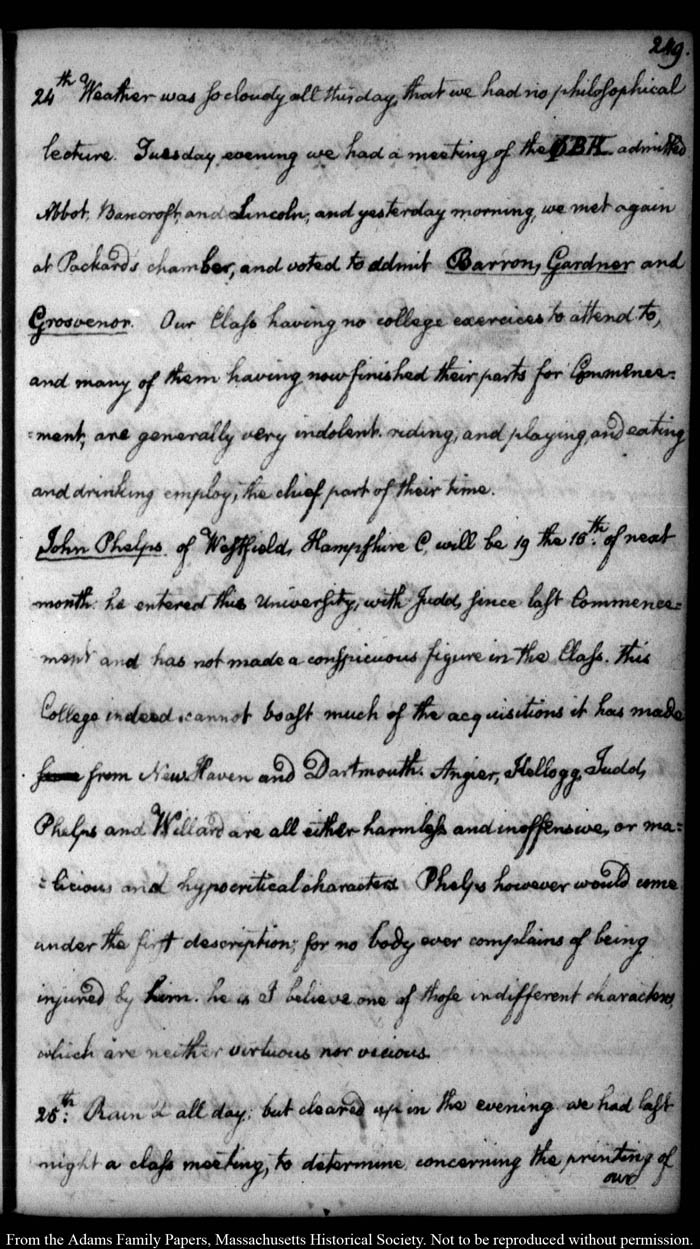 249.
24th Weather was so cloudy all this day, that we had no philosophical
lecture. Tuesday evening we had a meeting of the ΦBK. admitted
Abbot, Bancroft, and Lincoln, and yesterday morning, we met again
at Packard's chamber, and voted to admit Barron, Gardner and
Grosvenor. Our Class having no college exercices to attend to,
and many of them having now finished their parts for Commence=
=ment, are generally very indolent. riding, and playing, and eating
and drinking employ, the chief part of their time.
John Phelps of Westfield, Hampshire C, will be 19 the 15th. of next
month: he entered this University, with Judd, since last Commence=
ment and has not made a conspicuous figure in the Class. This
College indeed cannot boast much of the acquisitions it has made
from New Haven and Dartmouth. Angier, Kellogg, Judd,
Phelps and Willard are all either harmless and inoffensive, or ma=
=licious and hypocritical characters Phelps however would come
under the first description; for no body ever complains of being
injured by him. he is I believe one of those indifferent characters,
which are neither virtuous nor vicious.
25th: Rain'd all day: but cleared up in the evening. we had last
night a class meeting, to determine concerning the printing of
our
From the Adams Family Papers, Massachusetts Historical Society. Not to be reproduced without permission.